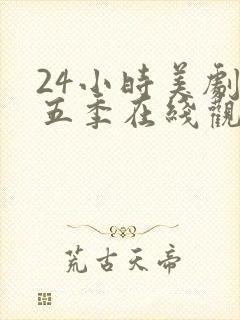 24小時美劇
五季在綫觀
荒古天帝